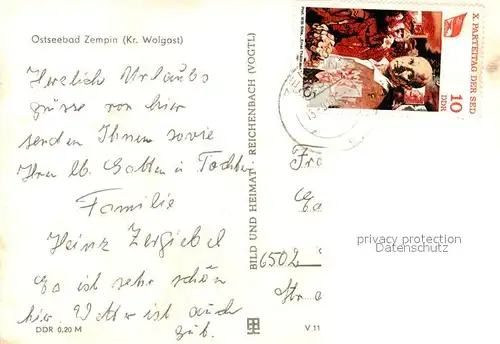 Ostseebad Zempin (Kr. Wolgast)
Herzlich Urlaubs
grüsse von hier
senden Ihnen sowie
Ihren lb. Gatten u Tochter
Familie
Heinz Zergiebel
Es ist sehr schön
hier. Wetter ist auch
gut.
DDR 0,20 M
BILD UND HEIMAT REICHENBACH (VOGTL)
V 11
X. PARTEITAG DER SED
DDR 10
Fr
6502
Str.
privacy protection
Datenschutz